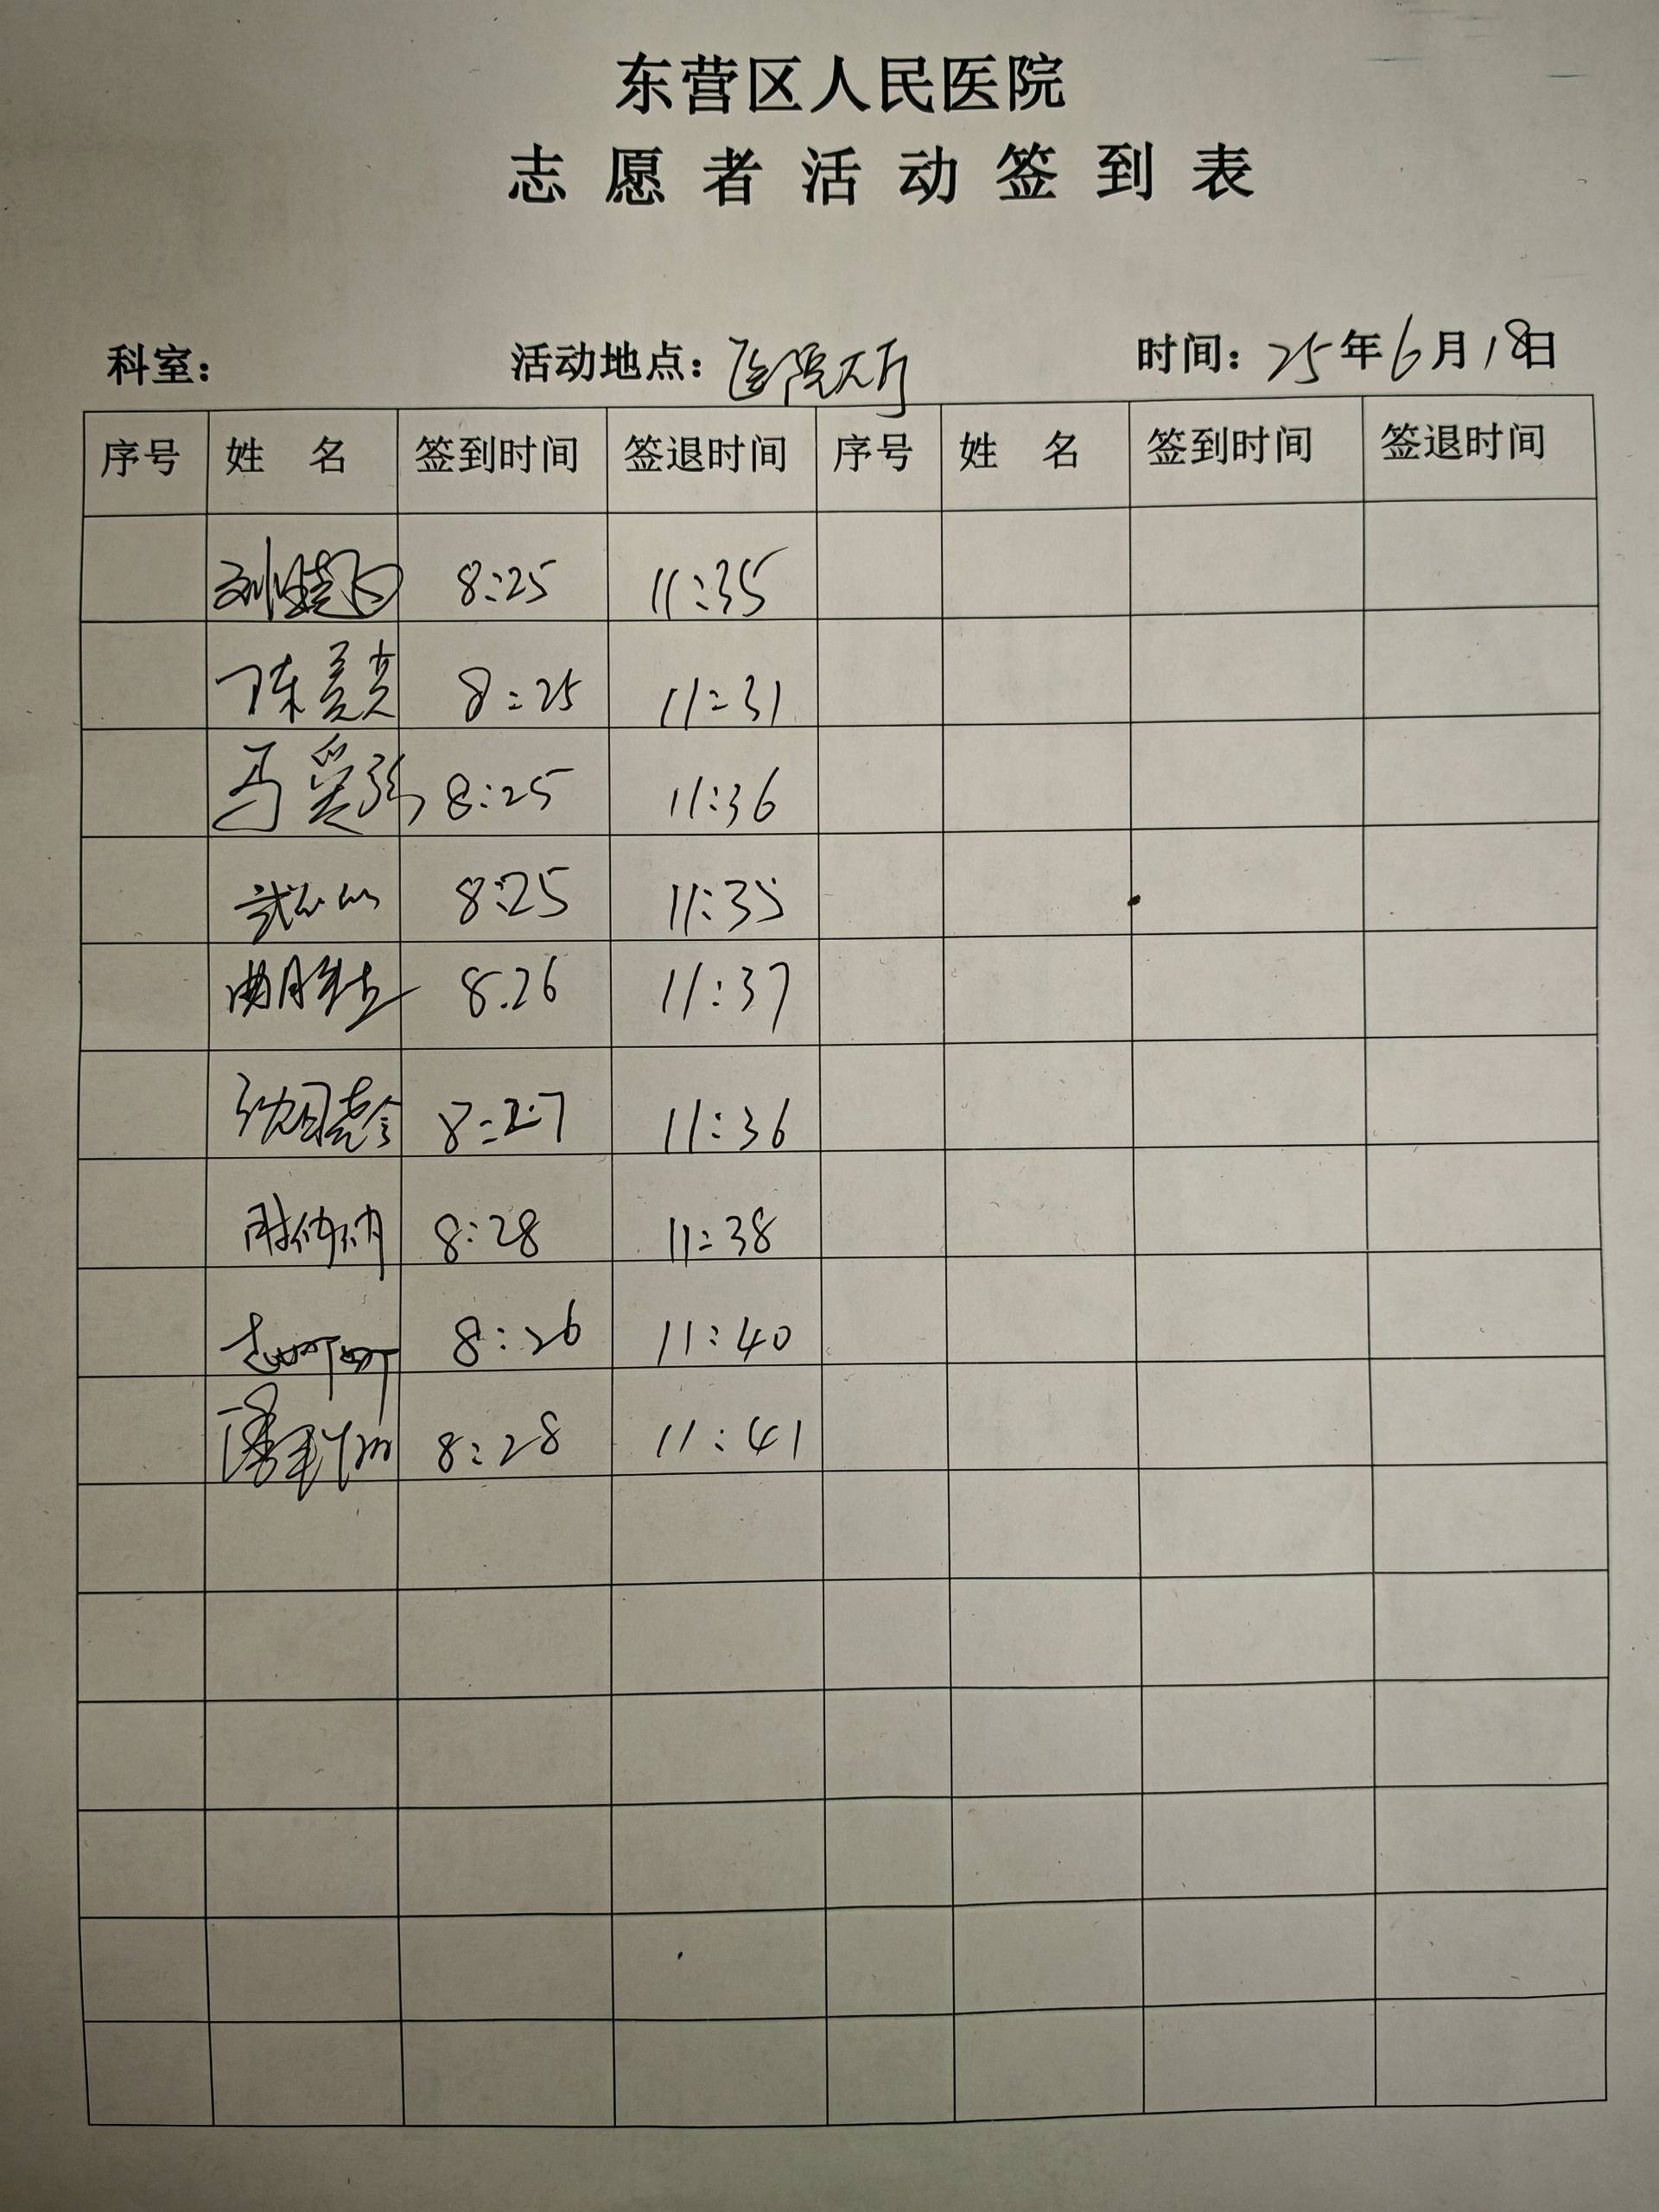 东营区人民医院
志愿者活动签到表
科室： 活动地点：医院大厅 时间：25年6月18日
序号 姓名 签到时间 签退时间 序号 姓名 签到时间 签退时间
8:25 11:35
陈 8:25 11:31
冯爱 8:25 11:36
8:25 11:35
曲胜 8.26 11:37
8:27 11:36
8:28 11:38
赵娜娜 8:26 11:40
潘 8:28 11:41